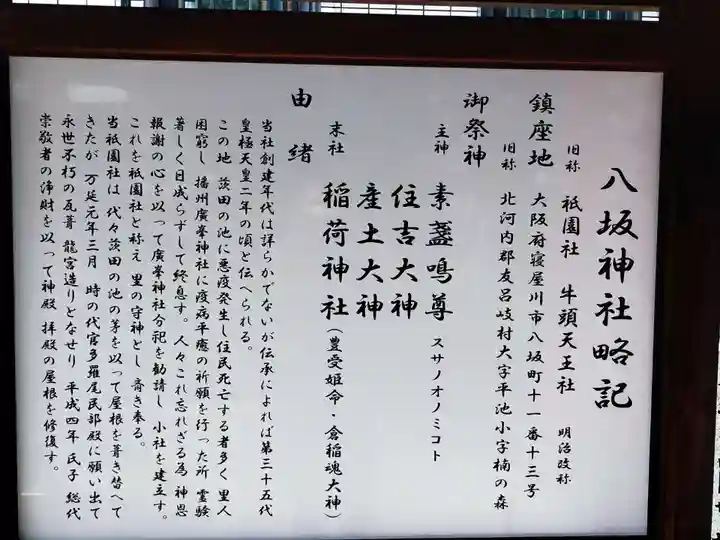 八坂神社略記
旧称 祇園社 牛頭天王社 明治改称
鎮座地 大阪府寝屋川市八坂町十一番十三号
旧称 北河内郡友呂岐村大字平池小字楠の森
御祭神
主神 素盞鳴尊 スサノオノミコト
住吉大神
産土大神
末社 稲荷神社(豊受姫命・倉稲魂大神)
由緒
当社創建年代は詳らかでないが伝承によれば第三十五代
皇極天皇二年の頃と伝へられる。
この地 茨田の池に悪疫発生し住民死亡する者多く 里人
困窮し 播州廣峯神社に疫病平癒の祈願を行った所 霊験
著しく日成らずして終息す。人々これ忘れざる為 神恩
報謝の心を以って廣峯神社分祀を勧請し 小社を建立す。
これを祇園社と称え 里の守神とし 斎き奉る。
当祇園社は 代々茨田の池の茅を以って屋根を葺き替へて
きたが 万延元年三月 時の代官多羅尾民部殿に願い出て
永世不朽の瓦葺 龍宮造りとなせり 平成四年 氏子 総代
崇敬者の浄財を以って神殿 拝殿の屋根を修復す。